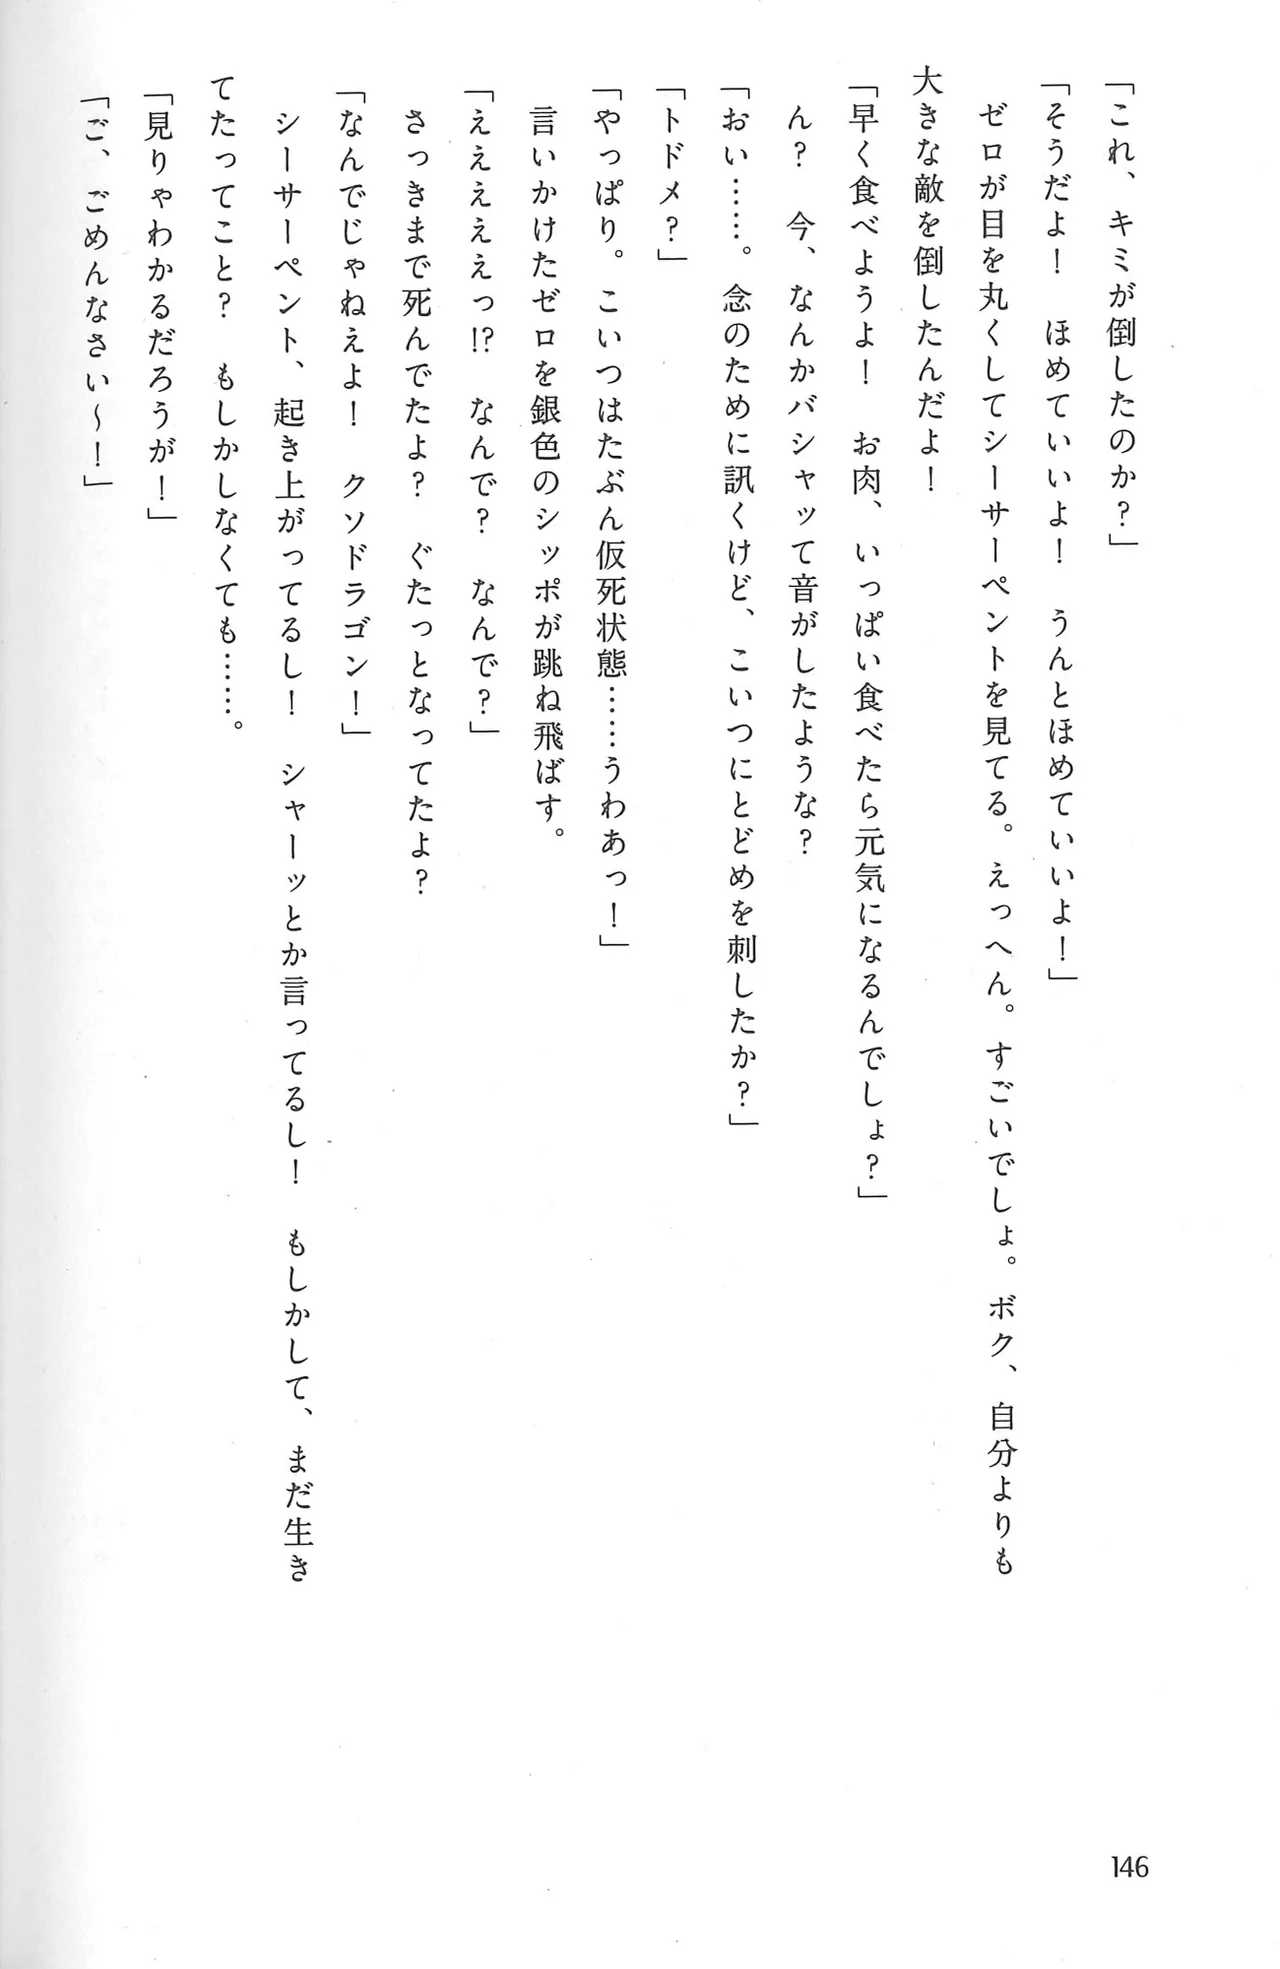 「これ、キミが倒したのか？」
「そうだよ！　ほめていいよ！　うんとほめていいよ！」
　ゼロが目を丸くしてシーサーペントを見てる。えっへん。すごいでしょ。ボク、自分よりも
大きな敵を倒したんだよ！
「早く食べようよ！　お肉、いっぱい食べたら元気になるんでしょ？」
　ん？　今、なんかバシャッて音がしたような？
「おい……。念のために訊くけど、こいつにとどめを刺したか？」
「トドメ？」
「やっぱり。こいつはたぶん仮死状態……うわあっ！」
　言いかけたゼロを銀色のシッポが跳ね飛ばす。
「ええええっ⁉　なんで？　なんで？」
　さっきまで死んでたよ？　ぐたっとなってたよ？
「なんでじゃねえよ！　クソドラゴン！」
　シーサーペント、起き上がってるし！　シャーッとか言ってるし！　もしかして、まだ生き
てたってこと？　もしかしなくても……。
「見りゃわかるだろうが！」
「ご、ごめんなさい～！」
146